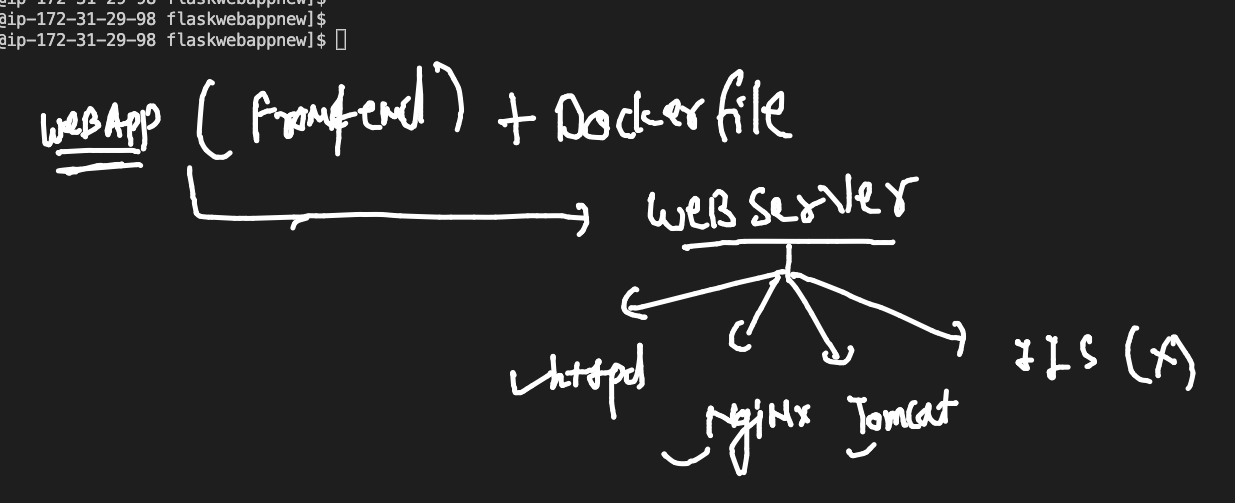 @ip-172-31-29-98 flaskwebappnew]$
@ip-172-31-29-98 flaskwebappnew]$
@ip-172-31-29-98 flaskwebappnew]$
WEBAPP (Frontend) + Dockerfile
WEB Server
httpd
NgiNx Tomcat
IIS (X)